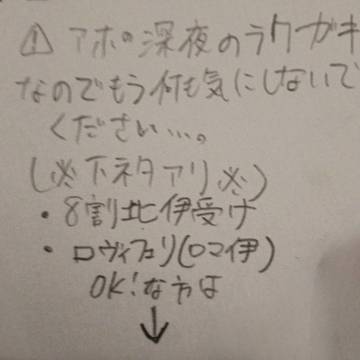 ⚠ アホの深夜のラクガキ
なのでもう何も気にしないで
ください…。
(※下ネタアリ※)
・8割北伊受け
・ロヴィフェリ(ロマ伊)
OK!な方は
↓